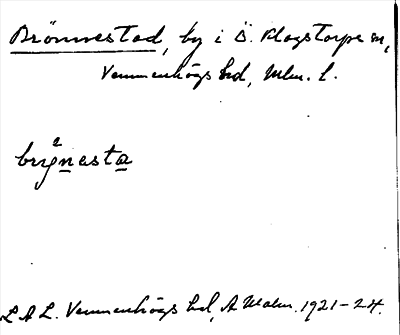 Brönnestad, by i Ö. Klagstorps sn,
Vemmenhögs hd, Mlm. l.
brỹnesta
L A L. Vemmenhögs hd, A Malm. 1921-24.